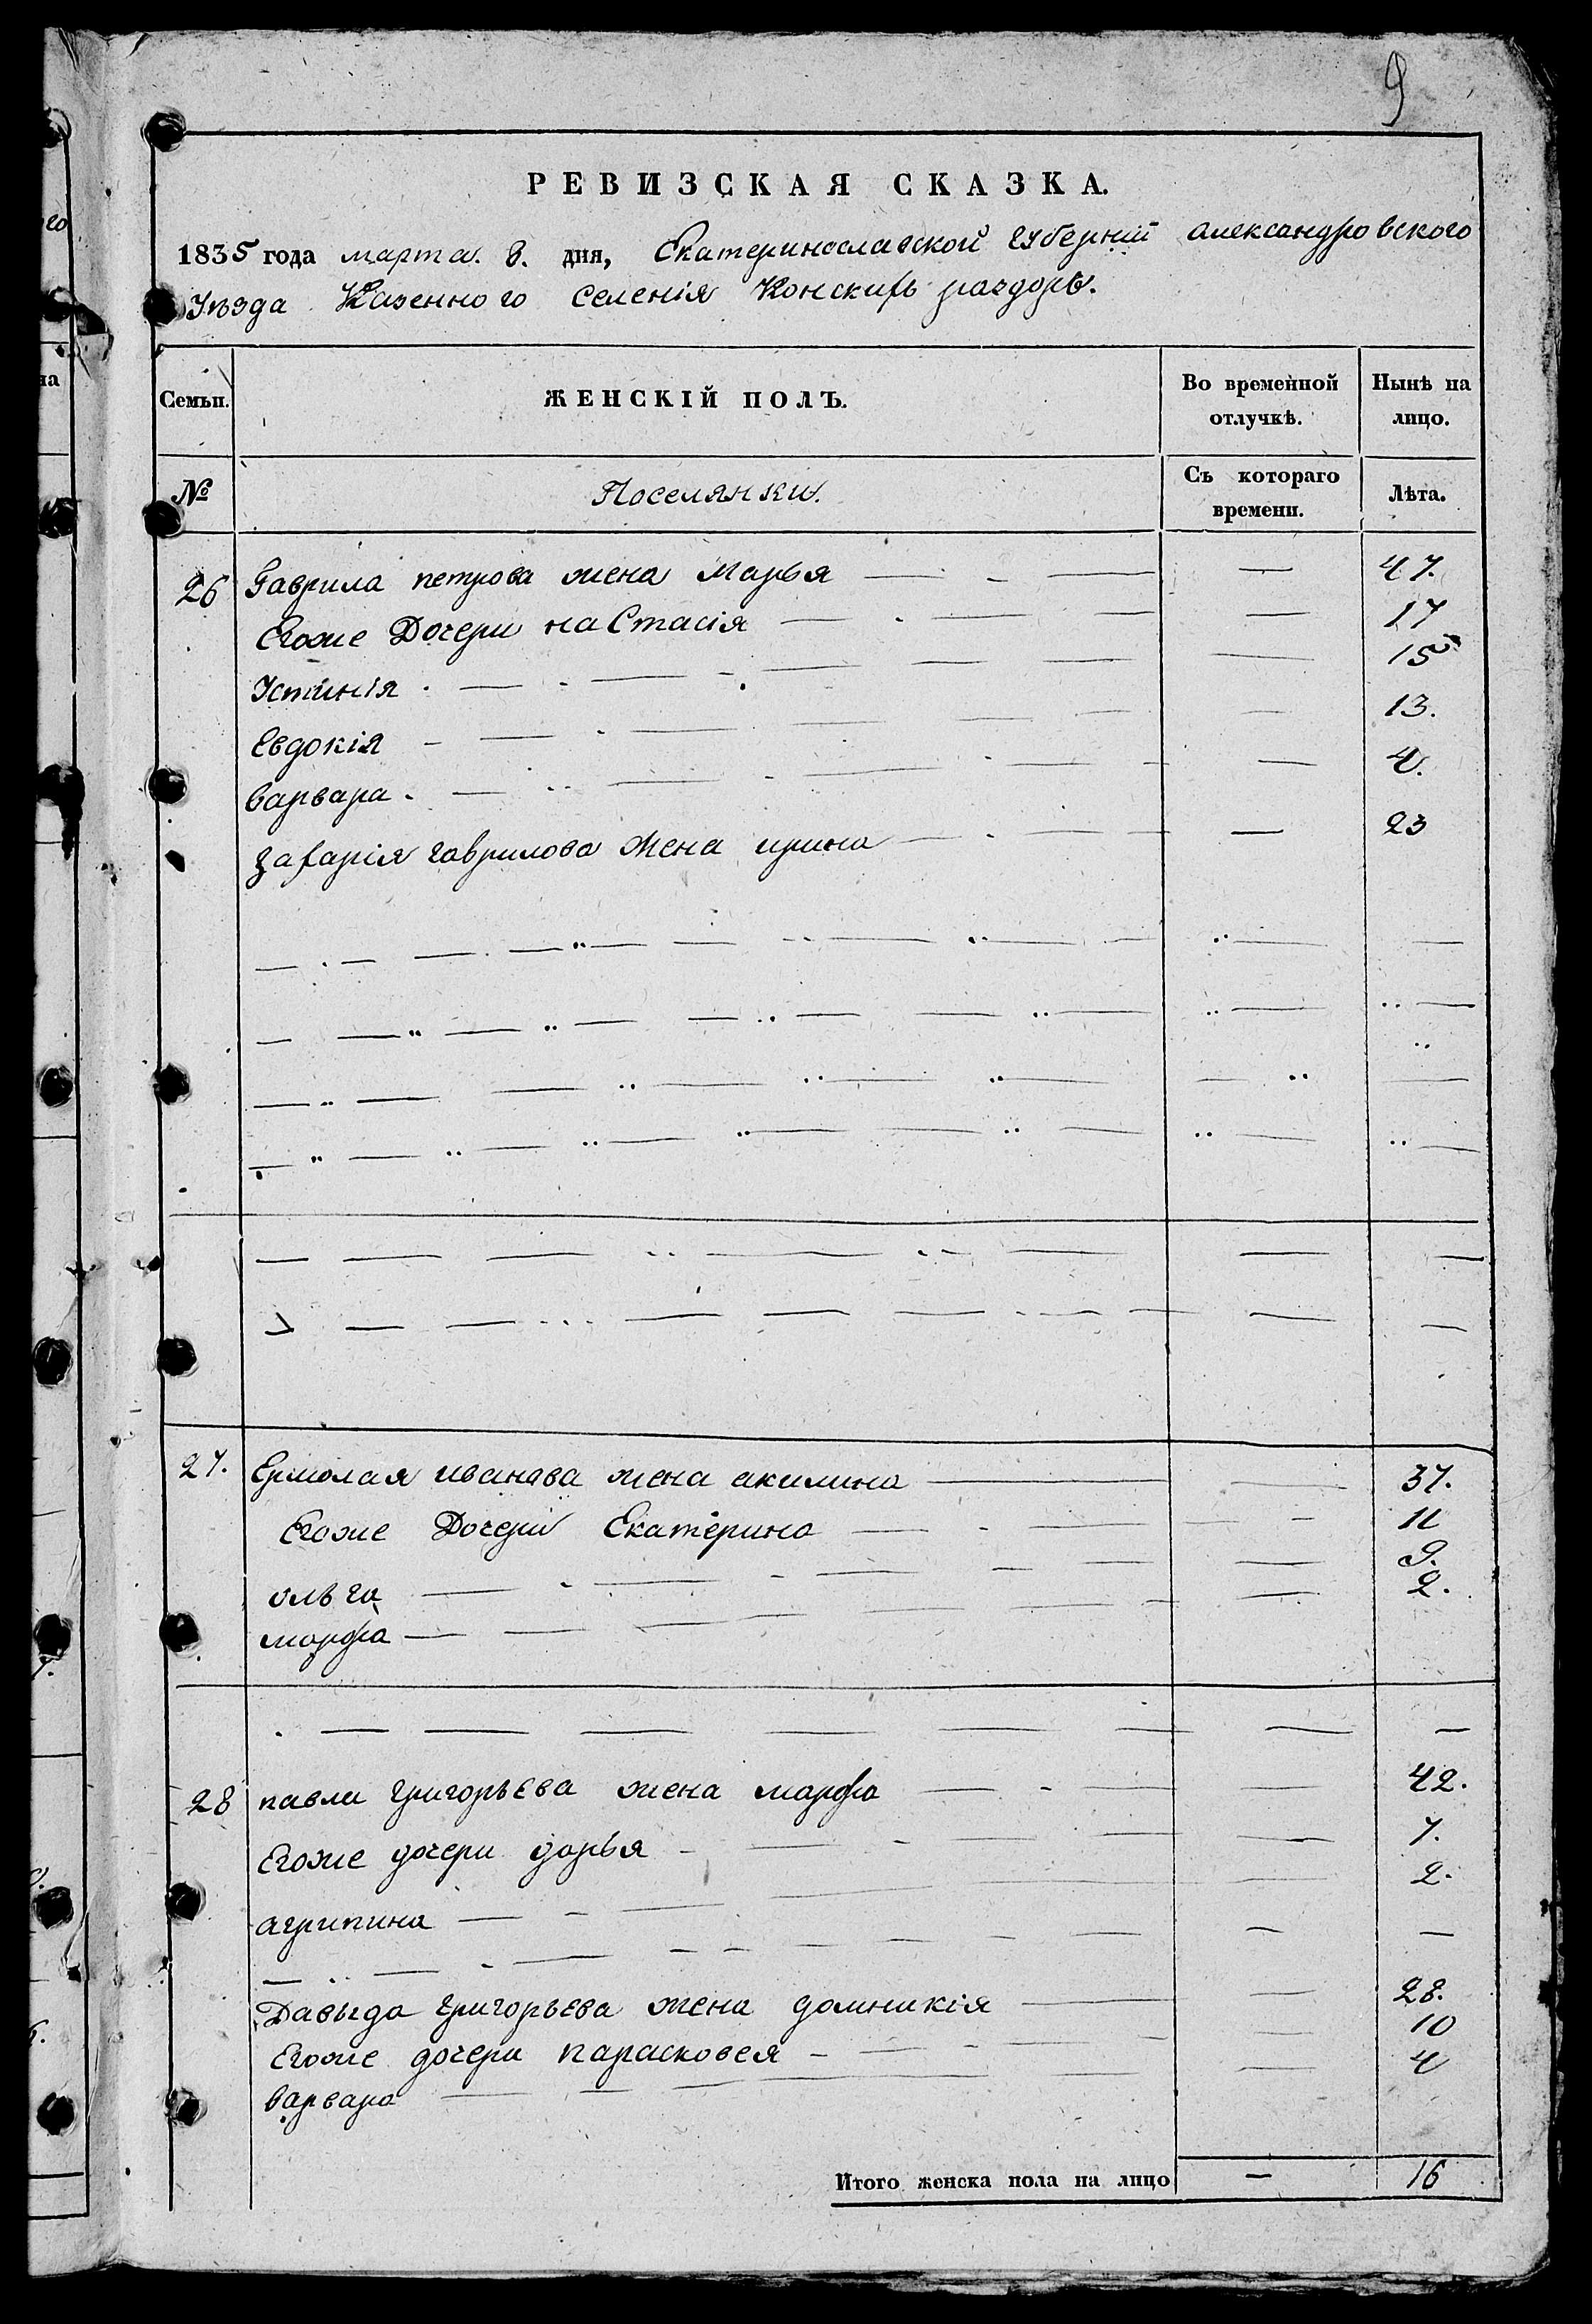 9
РЕВИЗСКАЯ СКАЗКА.
1835 года марта. 8. дня, Екатеринославской губерніи александровского
Уѣзда Казенного Селенія Конскихъ раздоръ.
Семьи. ЖЕНСКІЙ ПОЛЪ. Во временной отлучкѣ. Нынѣ на лицо.
№ Поселянки. Съ котораго времени. Лѣта.
26 Гаврила петрова жена Марья — 47.
Егоже Дочери наСтасія — 17
Устинія — 15
Евдокія — 13.
варвара — 4.
захарія гаврилова жена ирина — 23
27. Ермолая иванова жена акилина — 37.
Егоже Дочери Екатерина — 11
ольга — 9.
марфа — 2.
28 павла григорьева жена марфа — 42.
Егоже дочери дарья — 7.
агрипина — 2.
Давыда григорьева жена домникія — 28.
Егоже дочери парасковея — 10
варвара — 4
Итого женска пола на лицо — 16